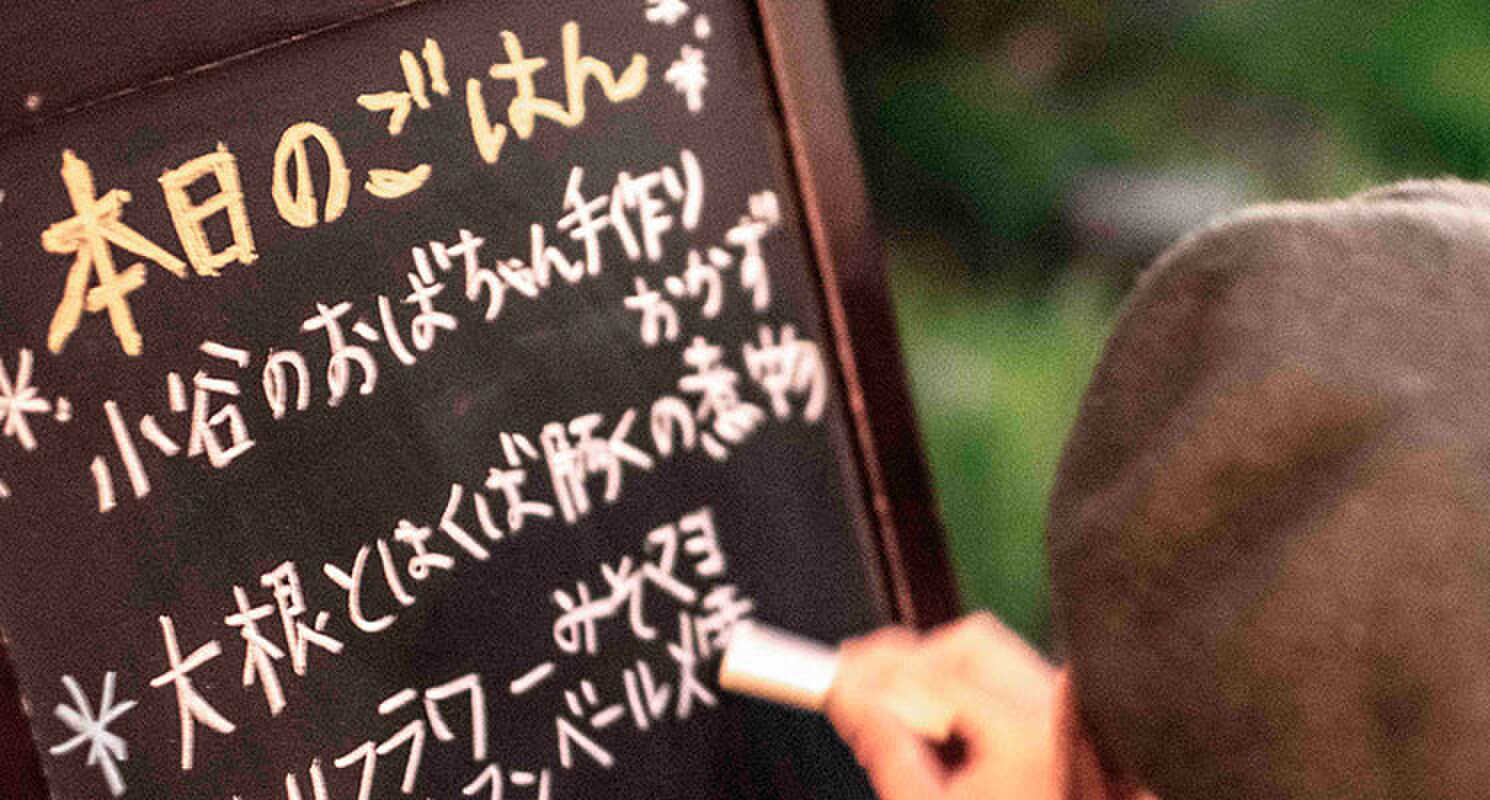 本日のごはん
小谷のおばちゃん手作り
おかず
大根とはくば豚くの煮物
リフラワーみそマヨ
ベールメ